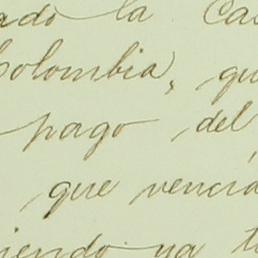 ado la Ca
Colombia, qu
pago del
que vencia
iendo ya t